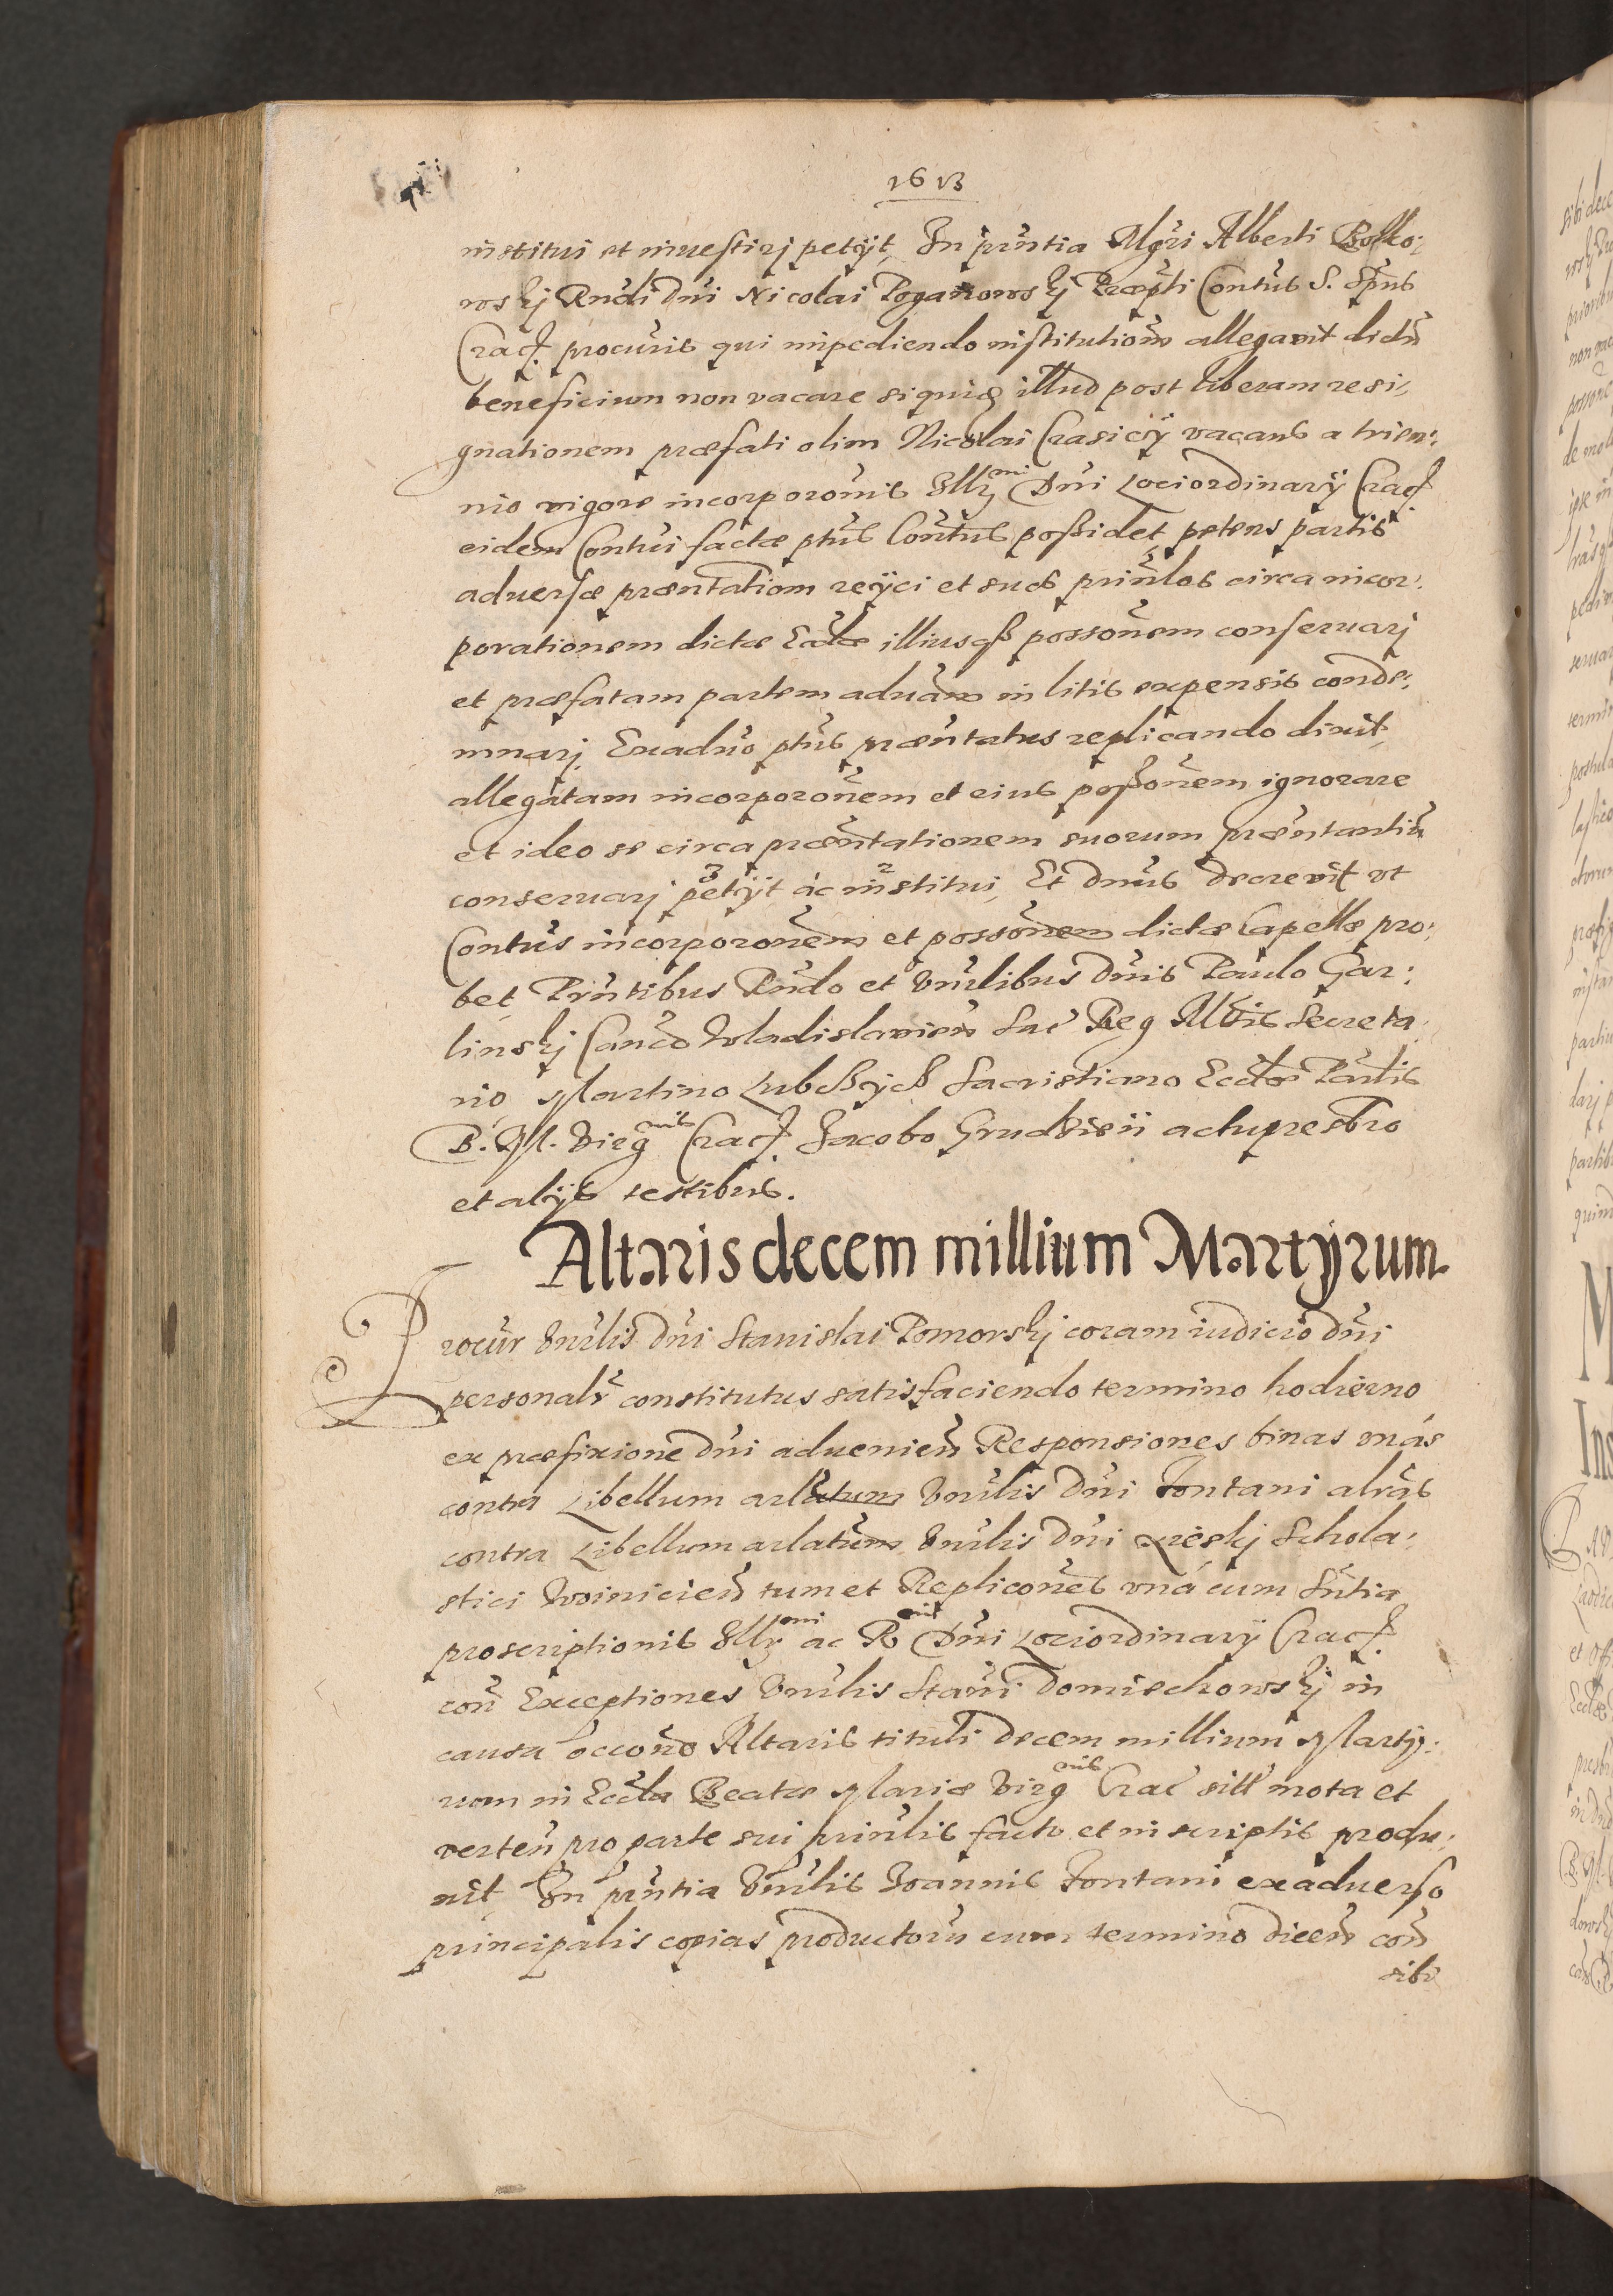 1613
institui et inuestirj petijt, In pñtia Mgri Alberti Bosko:
wskj Rndi Dni Nicolai Poganowskj Præpti Contus S. Spus
Crac. procuris qui impediendo institutionem allegauit dictũ
beneficium non vacare siquiđ illud post liberam resi,
gnationem præfati olim Nicolai Crasicÿ vacans a trien:
nio vigore incorporonis Illmi Dni Lociordinarÿ Crac.
eidem Contui factæ ptus Contus possidet petens partis
aduersæ præntationem reÿci et suos prinlos circa incor:
porationem dictæ Ecclæ illiusq possonem conseruarj
et præfatam partem aduam in litis expensis conde:
mnarj. Exaduo ptus præntatus replicando dixit
allegatam incorporonem et eius possonem ignorare
et ideo se circa præntationem suorum præntantiũ
conseruarj petijt ac institui, Et Dnus decreuit vt
Contus incorporonem et possonem dictæ Capellæ pro:
bet Prntibus Rndo et Vnlibus Dnis Paulo Gar:
linskj Canco Wladislauien Sac Reg Mtis Secreta
rio, Martino Lubczyck Sacristiano Ecclæ Parlis
B. M. Virginis Crac. Jacobo Grudzien actu presbro
et alÿs testibus.
Altaris decem millium Martyrum.
Procur Vnlis Dni Stanislai Pomorskj coram iudicio Dni
personalr constitutus satisfaciendo termino hodierno
ex præfixione Dni aduenien Responsiones binas vnas
contra Libellum arlatum Vnlis Dni Fontani alras
contra Libellum arlatum Vnlis Dni Schola:
stici Woinicien tum et Replicones vná cum Sntia
proscriptionis Illmi ac Rmi Dni Lociordinarÿ Crac.
con Exceptiones Vnlis Stani Domiechowskj in
causa occone Altaris tituli decem millium Martÿ:
rum in Eccla Beatæ Mariæ Virginis Crac sitt mota et
verten pro parte sui prinlis facto et in scriptis produ:
xit, In pñtia Vnlis Joannis Fontani ex aduerso
principalis copias productorũ cum termino dicen con
sibi